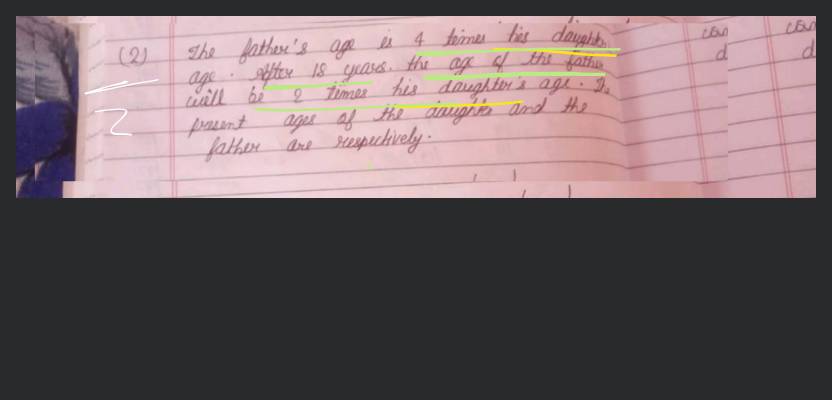 (2) The father's age is 4 times his daughter
age. After 18 years. the age of the father
will be 2 times his daughter's age. The
present ages of the daughter and the
father are respectively.
2